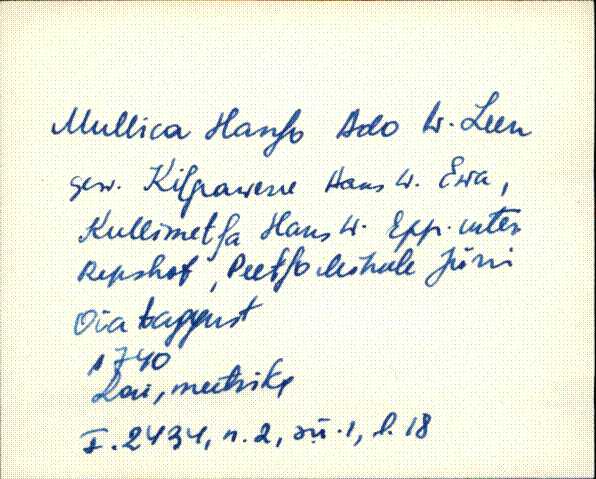 Mullica Hanso Ado W. Leen
gew. Kilgawerre Hans W. Ewa,
Kullimetsa Hans W. Epp. unter
Repshof, Peetso Mihkle Jürri
Oia taggust
1740
Lai, meetrika
F. 2434, n. 2, sü. 1, l. 18